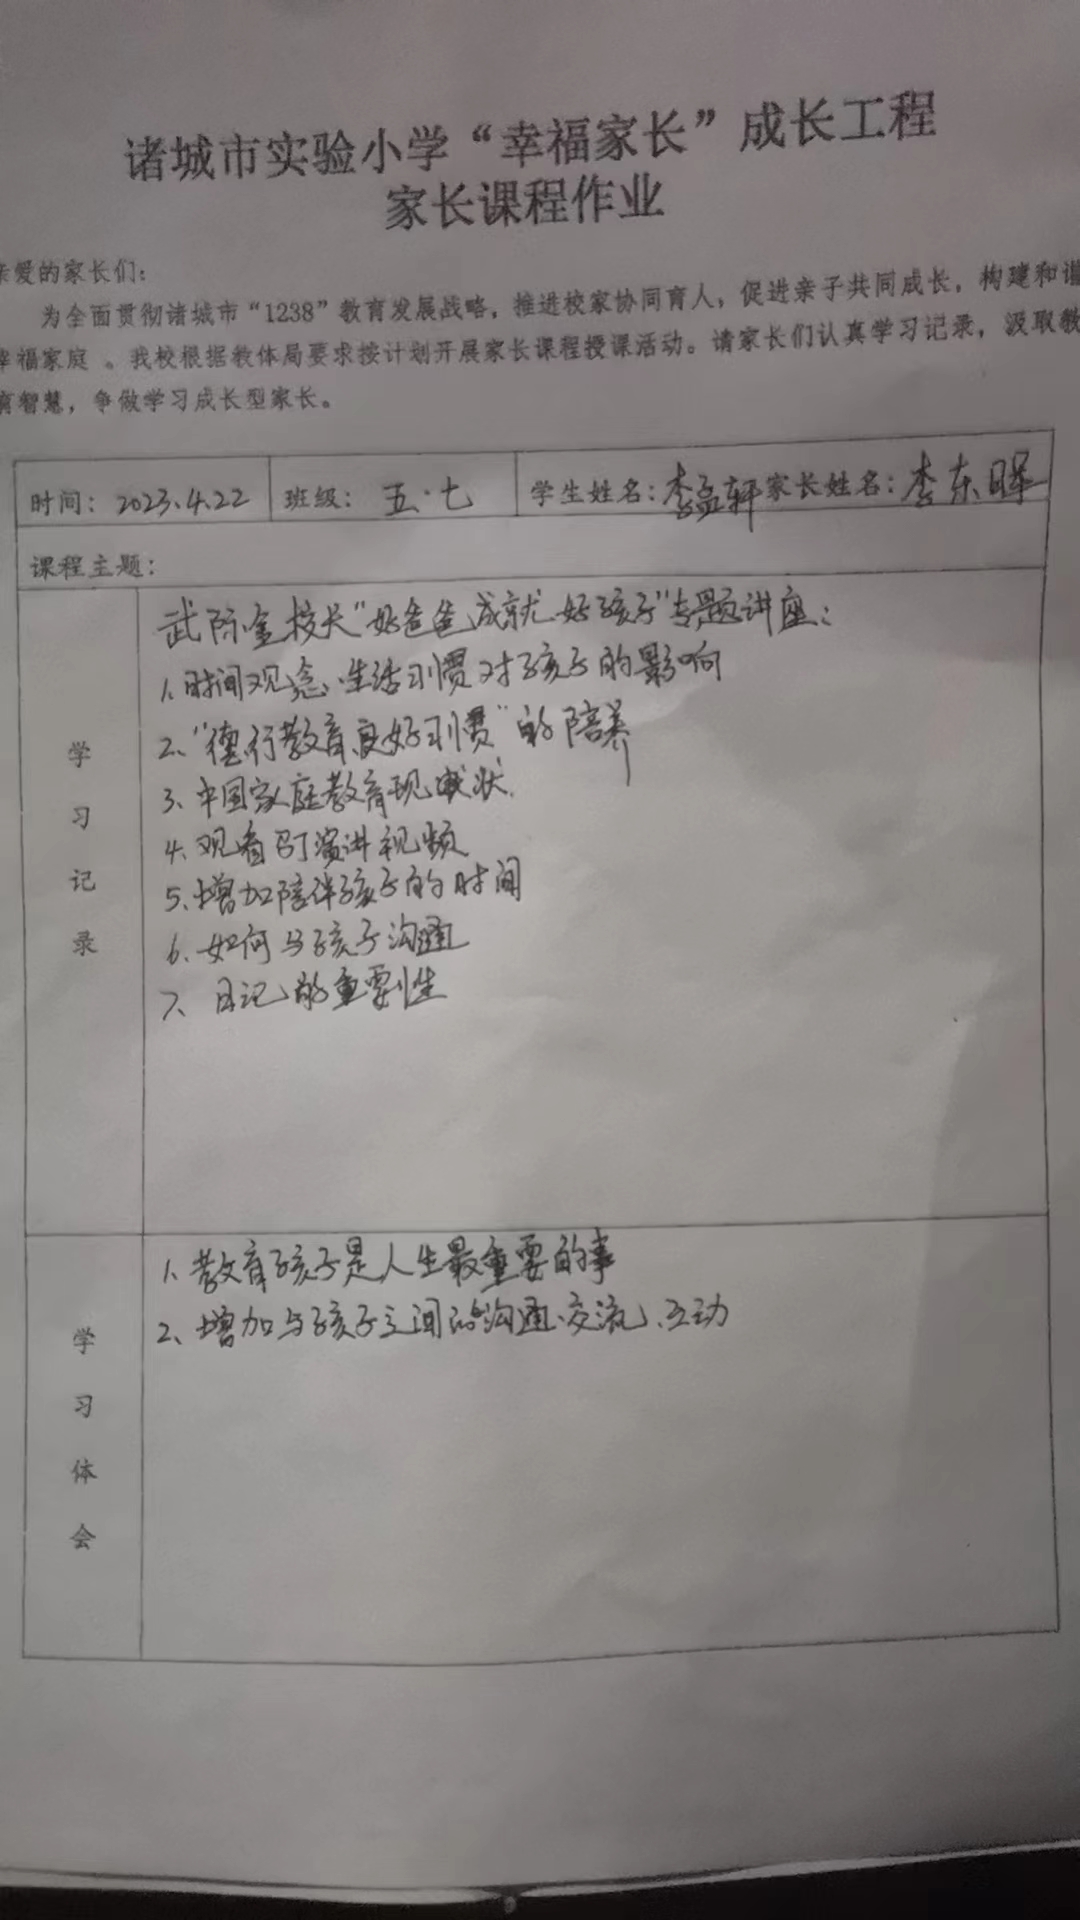 诸城市实验小学“幸福家长”成长工程
家长课程作业
亲爱的家长们：
为全面贯彻诸城市“1238”教育发展战略，推进校家协同育人，促进亲子共同成长，构建和谐
幸福家庭 。我校根据教体局要求按计划开展家长课程授课活动。请家长们认真学习记录，汲取教
育智慧，争做学习成长型家长。
时间：2023.4.22 班级：五.七 学生姓名：李孟轩 家长姓名：李东晖
课程主题：
学习记录
武际金校长“好爸爸成就好孩子”专题讲座：
1、时间观念、生活习惯对孩子的影响
2、“德行教育良好习惯”的陪养
3、中国家庭教育现状
4、观看 演讲视频
5、增加陪伴孩子的时间
6、如何与孩子沟通
7、日记的重要性
学习体会
1、教育孩子是人生最重要的事
2、增加与孩子之间的沟通、交流、互动